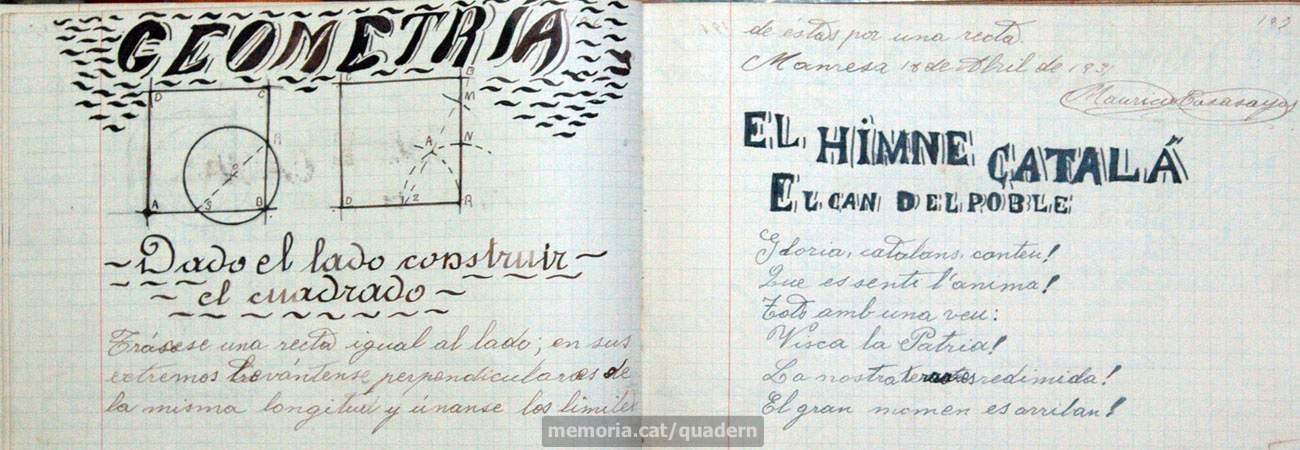 GEOMETRIA
D C
R
O
A 3 B
C B
M
A N
D 1 2 R
Dado el lado construir
el cuadrado
Trásese una recta igual al lado; en sus
extremos levántense perpendiculares de
la misma longitud y únanse los limites
193
de éstas por una recta.
Manresa 18 de Abril de 1931
Mauricio Casasayas
EL HIMNE CATALÁ
EL CAN DEL POBLE
Gloria, catalans, canteu!
Que es senti l'ánima!
Tots amb una veu:
Visca la Patria!
La nostra es redimida!
El gran momen es arriban!
memoria.cat/quadern